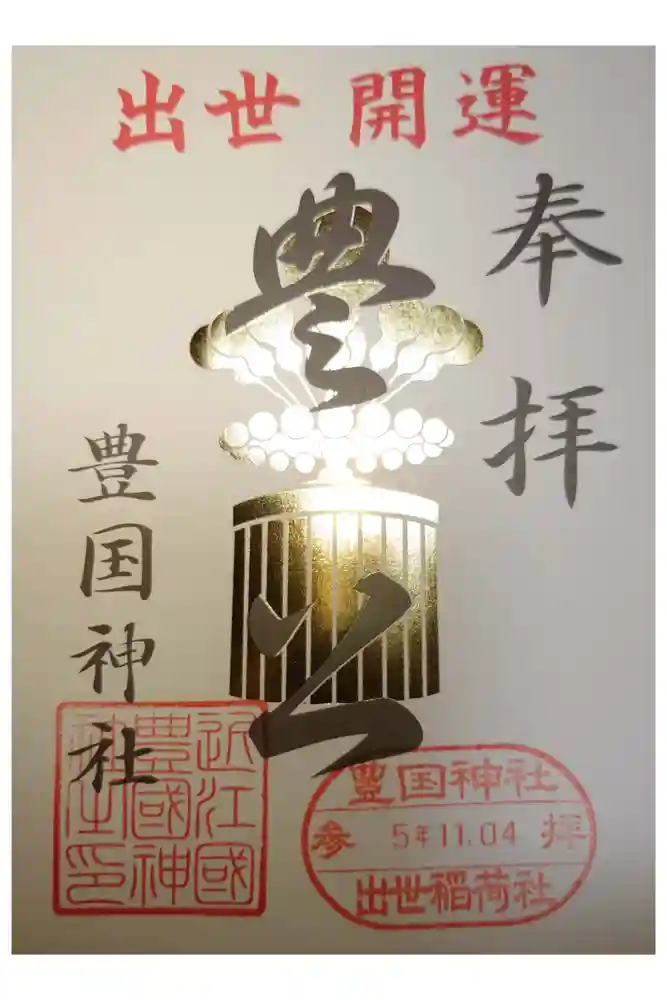 出世 開運
奉拝
豊公
豊国神社
近江國
豊國神
社之印
豊国神社
参 5年11.04 拝
出世稲荷社